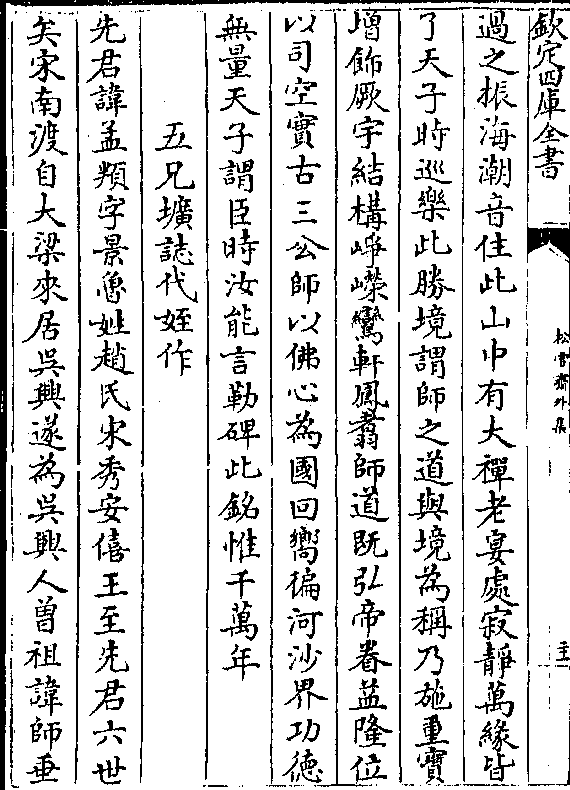 欽定四庫全書
松雪齋外集
過之振海潮音住此山中有大禪老宴處寂靜萬緣皆
了天子時巡樂此勝境謂師之道與境為稱乃施重寶
增飾厥宇結構崢嶸鸞軒鳳翥師道既弘帝眷益隆位
以司空實古三公師以佛心為國回嚮徧河沙界功徳
無量天子謂臣時汝能言勒碑此銘惟千萬年
五兄壙誌代姪作
先君諱孟頫字景魯姓趙氏宋秀安僖王至先君六世
矣宋南渡自大梁來居吳興遂為吳興人曽祖諱師垂